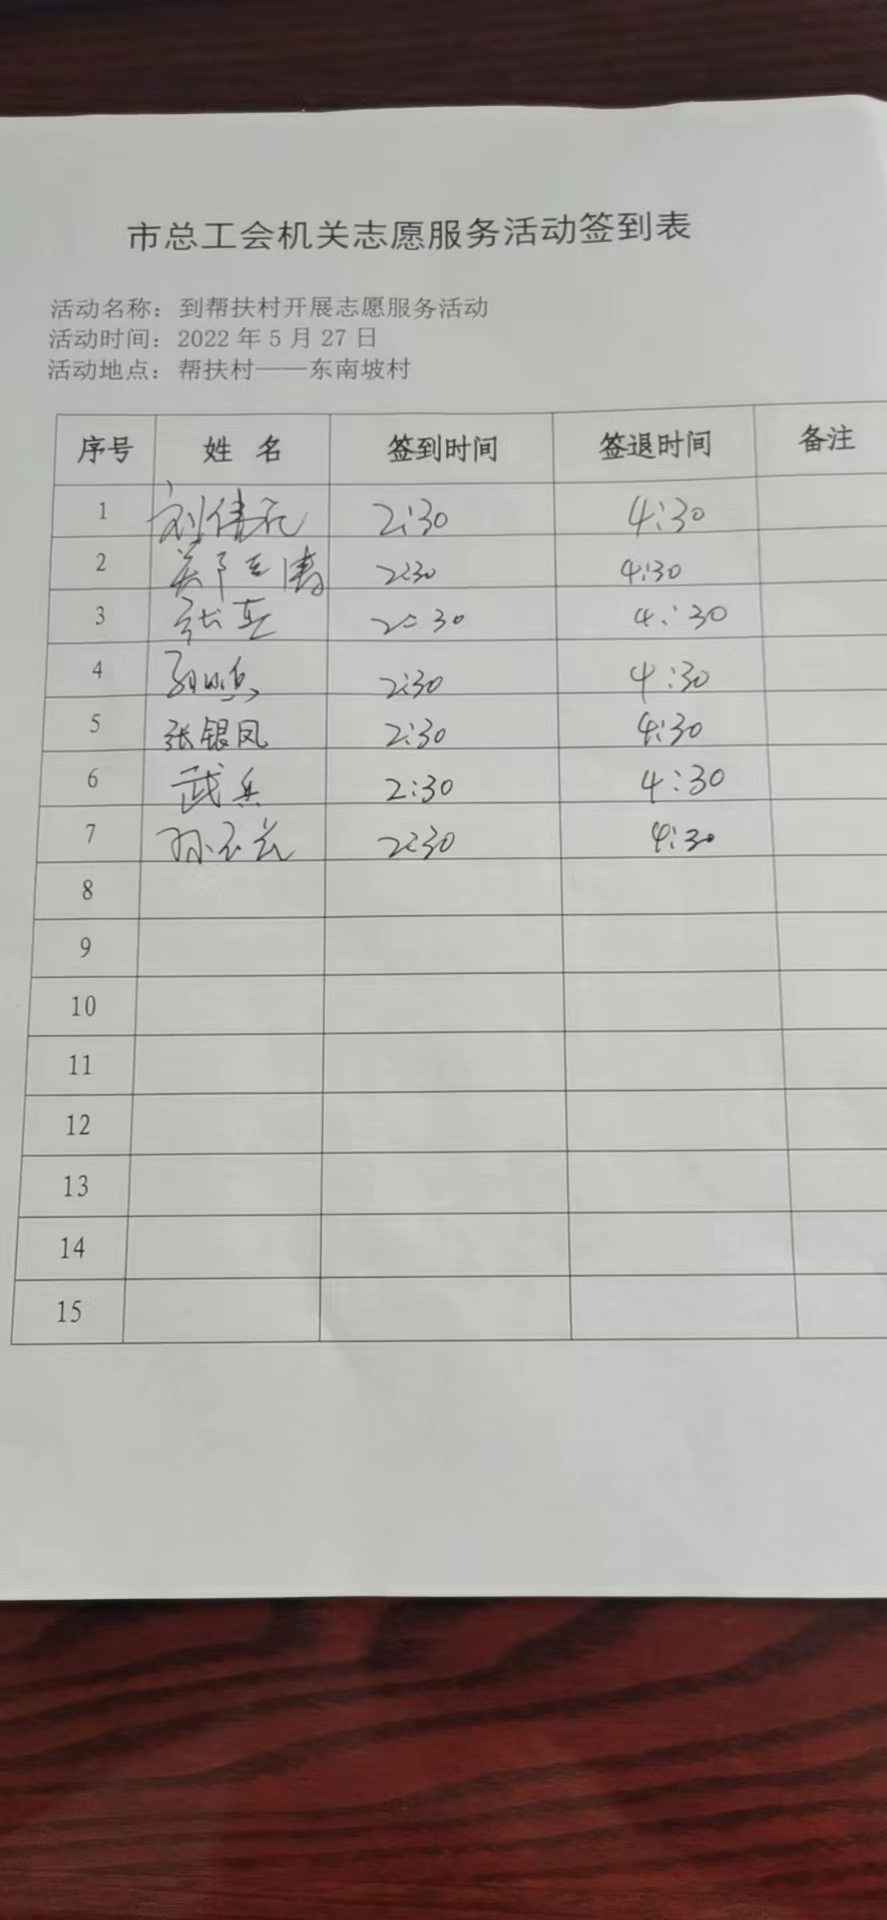 市总工会机关志愿服务活动签到表
活动名称：到帮扶村开展志愿服务活动
活动时间：2022 年 5 月 27 日
活动地点：帮扶村——东南坡村
序号 姓 名 签到时间 签退时间 备注
1 2:30 4:30
2 2:30 4:30
3 2:30 4:30
4 2:30 4:30
5 张银凤 2:30 4:30
6 武兵 2:30 4:30
7 2:30 4:30
8
9
10
11
12
13
14
15